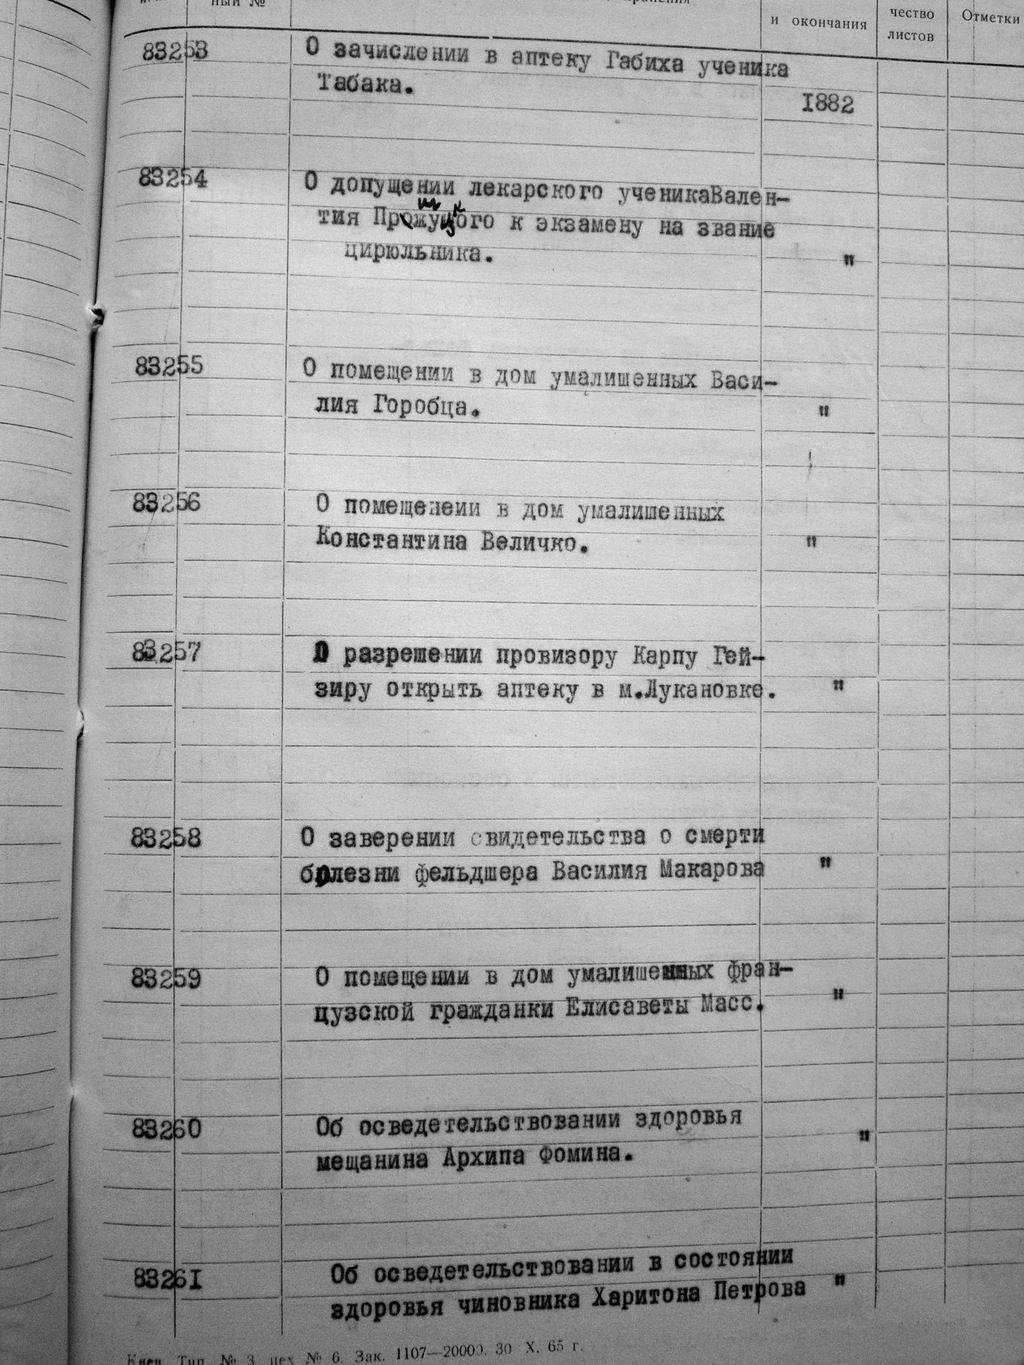 ный №
и окончания
чество
листов
Отметки
83253
О зачислении в аптеку Габиха ученика
Табака.
1882
83254
О допущении лекарского ученикаВален-
тия к экзамену на звание
цирюльника.
"
83255
О помещении в дом умалишенных Васи-
лия Горобца.
"
83256
О помещенеии в дом умалишенных
Константина Величко.
"
83257
О разрешении провизору Карпу Гей-
зиру открыть аптеку в м.Лукановке.
"
83258
О заверении свидетельства о смерти
болезни фельдшера Василия Макарова
"
83259
О помещении в дом умалишенных фран-
цузской гражданки Елисаветы Масс.
"
83260
Об осведетельствовании здоровья
мещанина Архипа Фомина.
"
83261
Об осведетельствовании в состоянии
здоровья чиновника Харитона Петрова
"
Киев Тип. № 3, цех № 6. Зак. 1107—20000. 30 X. 65 г.